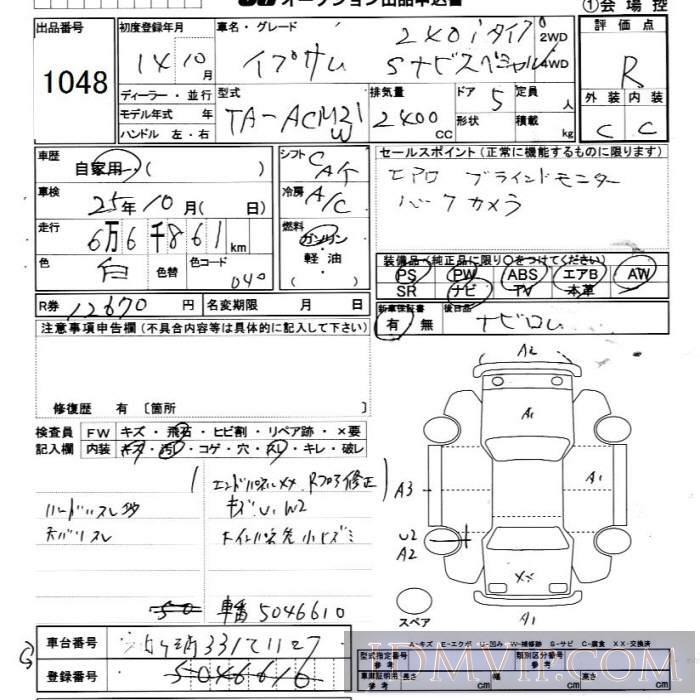 オークション出品申込書
①会場控
出品番号
1048
初度登録年月
14 10月
車名・グレード
イプサム
240iタイプ
Sナビスペシャル
2WD
4WD
評価点
R
外装 内装
C C
ディーラー・並行
モデル年式 年
ハンドル 左・右
型式
TA-ACM21W
排気量
2400
CC
ドア
5
形状
定員
人
積載
kg
車歴
自家用・( )
車検
25年10月( 日)
走行
6万6千861km
色
白
色替
色コード
040
シフト
CAT
冷房
A/C
燃料
ガソリン
軽油
( )
セールスポイント(正常に機能するものに限ります)
エアロ ブラインドモニター
バックカメラ
装備品(純正品に限り○をつけてください)
PS PW ABS エアB AW
SR ナビ TV 本革
新車保証書
有 無
後日品
ナビロム
R券 12670円
名変期限 月 日
注意事項申告欄(不具合内容等は具体的に記入して下さい)
修復歴 有 〔箇所
検査員
記入欄
FW キズ・飛石・ヒビ割・リペア跡・×要
内装 キズ・汚れ・コゲ・穴・スレ・キレ・破レ
エンドパネルXX
修正
キズ.U.W2
50
車番 5046610
車台番号
登録番号
5046616
A2
A1
A3
A1
U2
A2
XX
A1
スペア
A-キズ E-エクボ U-凹み W-補修跡 S-サビ C-腐食 XX-交換済
型式指定番号
参考
類別区分番号
参考
車両証明用
参考
長さ cm
幅 cm
高さ cm
JDMVIP.COM